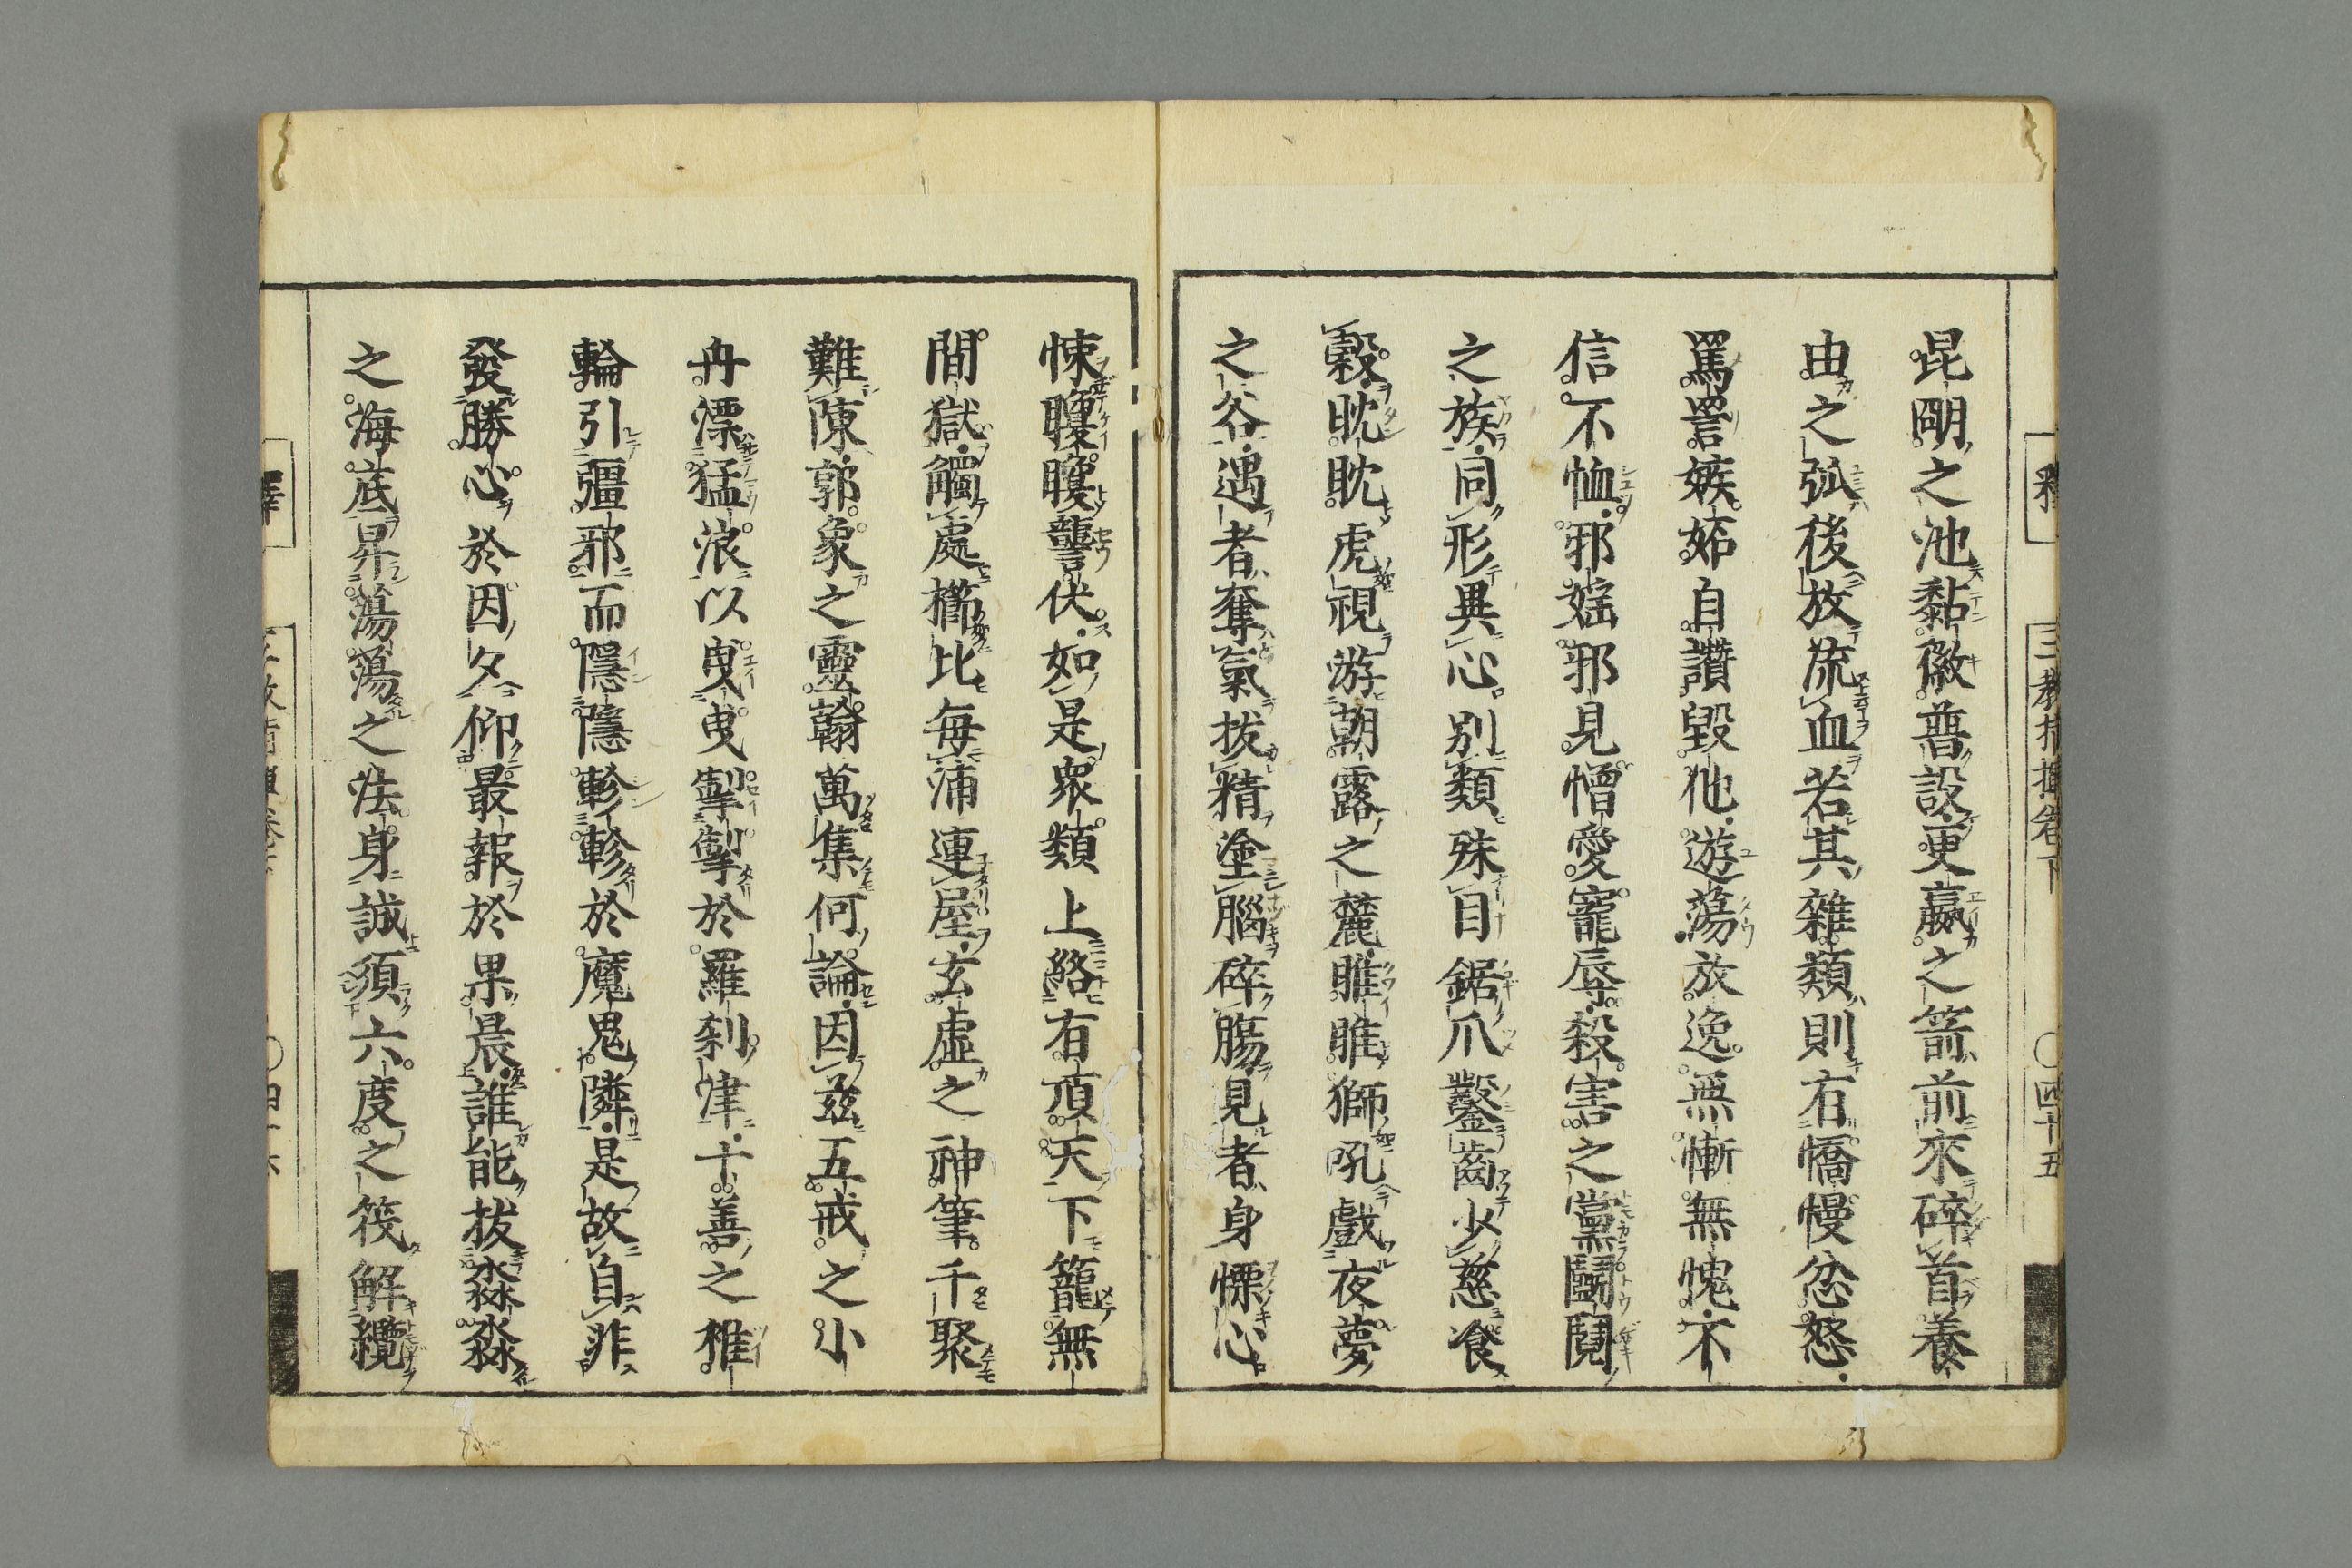 三教指揮卷下
四十五
昆明之池黏徽普設更蠃之箭前來碎首養
由之弧後放流血若其雜類則有憍慢忿怒
罵詈嫉妬自讚毀他遊蕩放逸無慚無愧不
信不恤邪婬邪見憎愛寵辱殺害之黨鬪鬩
之族同形異心別類殊目鋸爪鑿齒少慈食
穀眈眈虎視游朝露之麓睢睢獅吼戲夜夢
之谷遇者奪氣拔精塗腦碎膓見者身慄心
悚矎矎讋伏如是衆類上絡有頂天下籠無
間獄觸處櫛比每浦連屋玄虛之神筆千聚
難陳郭象之靈翰萬集何論因兹五戒之小
舟漂猛浪以曳曳掣掣於羅刹津十善之椎
輪引彊邪而隱隱軫軫於魔鬼隣是故自非
發勝心於因夕仰最報於果晨誰能拔淼淼
之海底昇蕩蕩之法身誠須六度之筏解纜